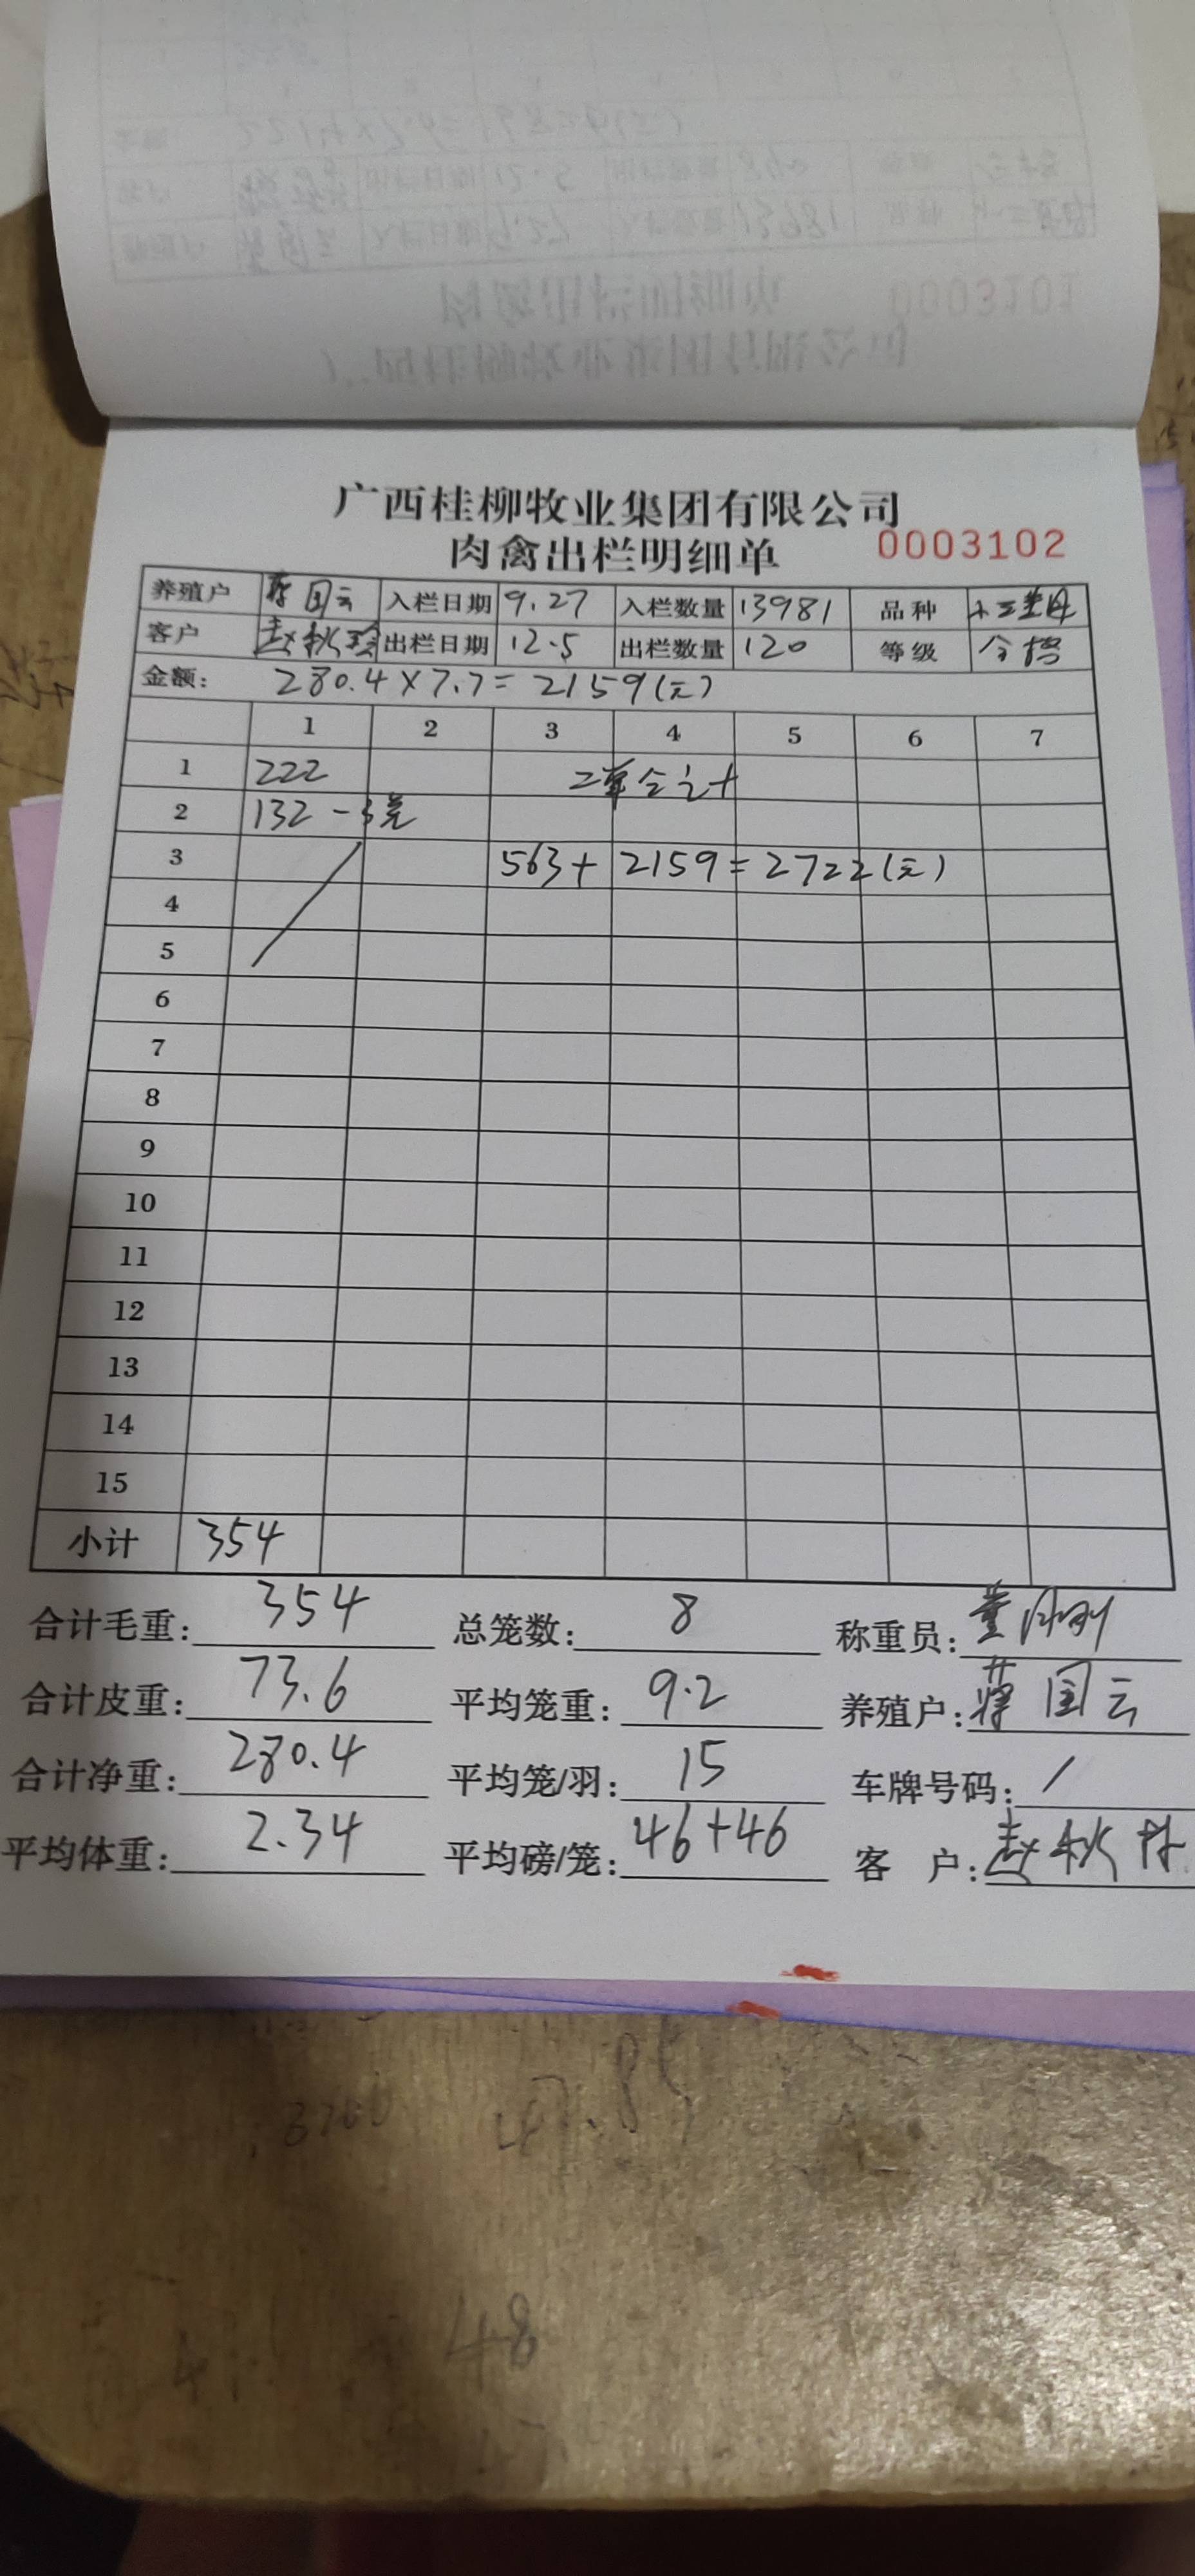 0003101
广西桂柳牧业集团有限公司
肉禽出栏明细单 0003102
养殖户 蒋国云 入栏日期 9.27 入栏数量 13981 品种
客户 赵秋 出栏日期 12.5 出栏数量 120 等级
金额: 280.4×7.7=2159(元)
1 2 3 4 5 6 7
1 222 二单合计
2 132-3
3 563+2159=2722(元)
4
5
6
7
8
9
10
11
12
13
14
15
小计 354
合计毛重: 354 总笼数: 8 称重员: 董
合计皮重: 73.6 平均笼重: 9.2 养殖户: 蒋国云
合计净重: 280.4 平均笼/羽: 15 车牌号码: /
平均体重: 2.34 平均磅/笼: 46+46 客户: 赵秋
48